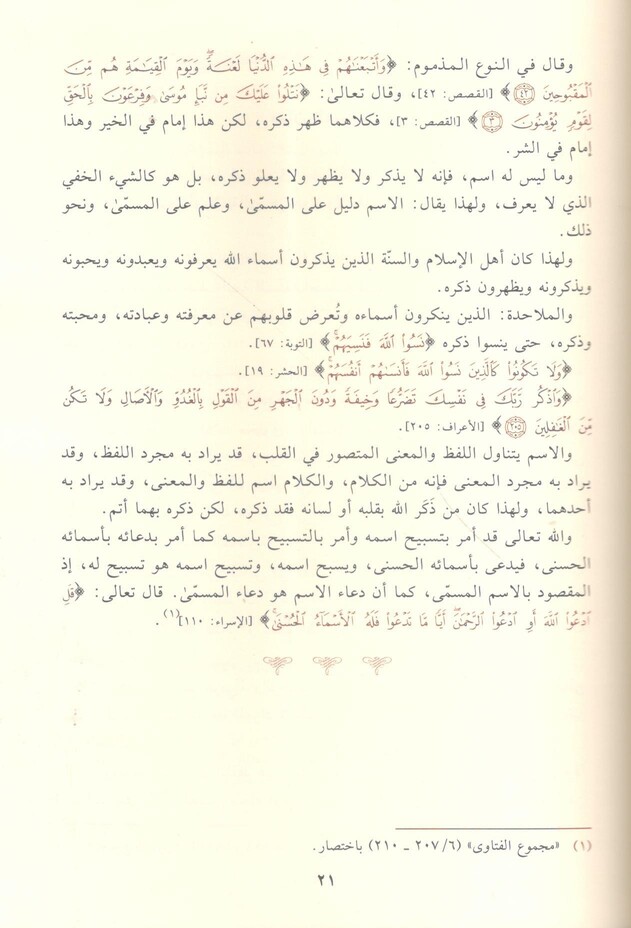 وقال في النوع المذموم: ﴿وَأَتْبَعْنَٰهُمْ فِى هَٰذِهِ ٱلدُّنْيَا لَعْنَةً وَيَوْمَ ٱلْقِيَٰمَةِ هُم مِّنَ
ٱلْمَقْبُوحِينَ ٤٢﴾ [القصص: ٤٢]، وقال تعالىٰ: ﴿نَتْلُوا۟ عَلَيْكَ مِن نَّبَإِ مُوسَىٰ وَفِرْعَوْنَ بِٱلْحَقِّ
لِقَوْمٍ يُؤْمِنُونَ ٣﴾ [القصص: ٣]، فكلاهما ظهر ذكره، لكن هذا إمام في الخير وهذا
إمام في الشر.
وما ليس له اسم، فإنه لا يذكر ولا يظهر ولا يعلو ذكره، بل هو كالشيء الخفي
الذي لا يعرف، ولهذا يقال: الاسم دليل على المسمّىٰ، وعلم على المسمّىٰ، ونحو
ذلك.
ولهذا كان أهل الإسلام والسنّة الذين يذكرون أسماء الله يعرفونه ويعبدونه ويحبونه
ويذكرونه ويظهرون ذكره.
والملاحدة: الذين ينكرون أسماءه وتُعرض قلوبهم عن معرفته وعبادته، ومحبته
وذكره، حتى ينسوا ذكره ﴿نَسُوا۟ ٱللَّهَ فَنَسِيَهُمْ﴾ [التوبة: ٦٧].
﴿وَلَا تَكُونُوا۟ كَٱلَّذِينَ نَسُوا۟ ٱللَّهَ فَأَنسَىٰهُمْ أَنفُسَهُمْ﴾ [الحشر: ١٩].
﴿وَٱذْكُر رَّبَّكَ فِى نَفْسِكَ تَضَرُّعًا وَخِيفَةً وَدُونَ ٱلْجَهْرِ مِنَ ٱلْقَوْلِ بِٱلْغُدُوِّ وَٱلْءَاصَالِ وَلَا تَكُن
مِّنَ ٱلْغَٰفِلِينَ ٢٠٥﴾ [الأعراف: ٢٠٥].
والاسم يتناول اللفظ والمعنى المتصور في القلب، قد يراد به مجرد اللفظ، وقد
يراد به مجرد المعنى فإنه من الكلام، والكلام اسم للفظ والمعنى، وقد يراد به
أحدهما، ولهذا كان من ذَكَر الله بقلبه أو لسانه فقد ذكره، لكن ذكره بهما أتم.
والله تعالى قد أمر بتسبيح اسمه وأمر بالتسبيح باسمه كما أمر بدعائه بأسمائه
الحسنى، فيدعى بأسمائه الحسنى، ويسبح اسمه، وتسبيح اسمه هو تسبيح له، إذ
المقصود بالاسم المسمّى، كما أن دعاء الاسم هو دعاء المسمّىٰ. قال تعالى: ﴿قُلِ
ٱدْعُوا۟ ٱللَّهَ أَوِ ٱدْعُوا۟ ٱلرَّحْمَٰنَ أَيًّا مَّا تَدْعُوا۟ فَلَهُ ٱلْأَسْمَآءُ ٱلْحُسْنَىٰ﴾ [الإسراء: ١١٠](١).
(١) «مجموع الفتاوى» (٦/ ٢٠٧ - ٢١٠) باختصار.
٢١